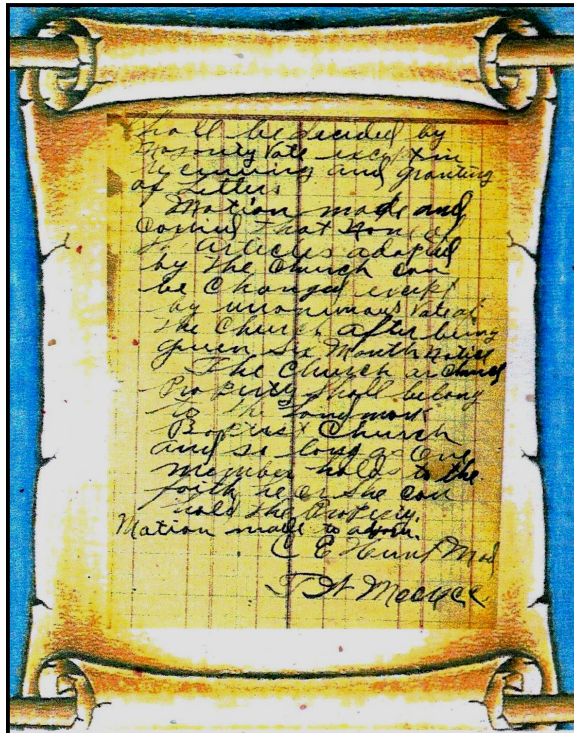 Shall be decided by
Majority Vote except in
recieving and granting
of Letters
Motion made and
Carried that None of
articles adopted
by the Church can
be Changed except
by unanimous Vote of
the Church after being
given Six Month Notice
The Church or Church
Property shall belong
to the
Baptist Church
and so long as One
member holds to the
faith he or she can
hold the Property.
Motion made to
C E Hunt Mod